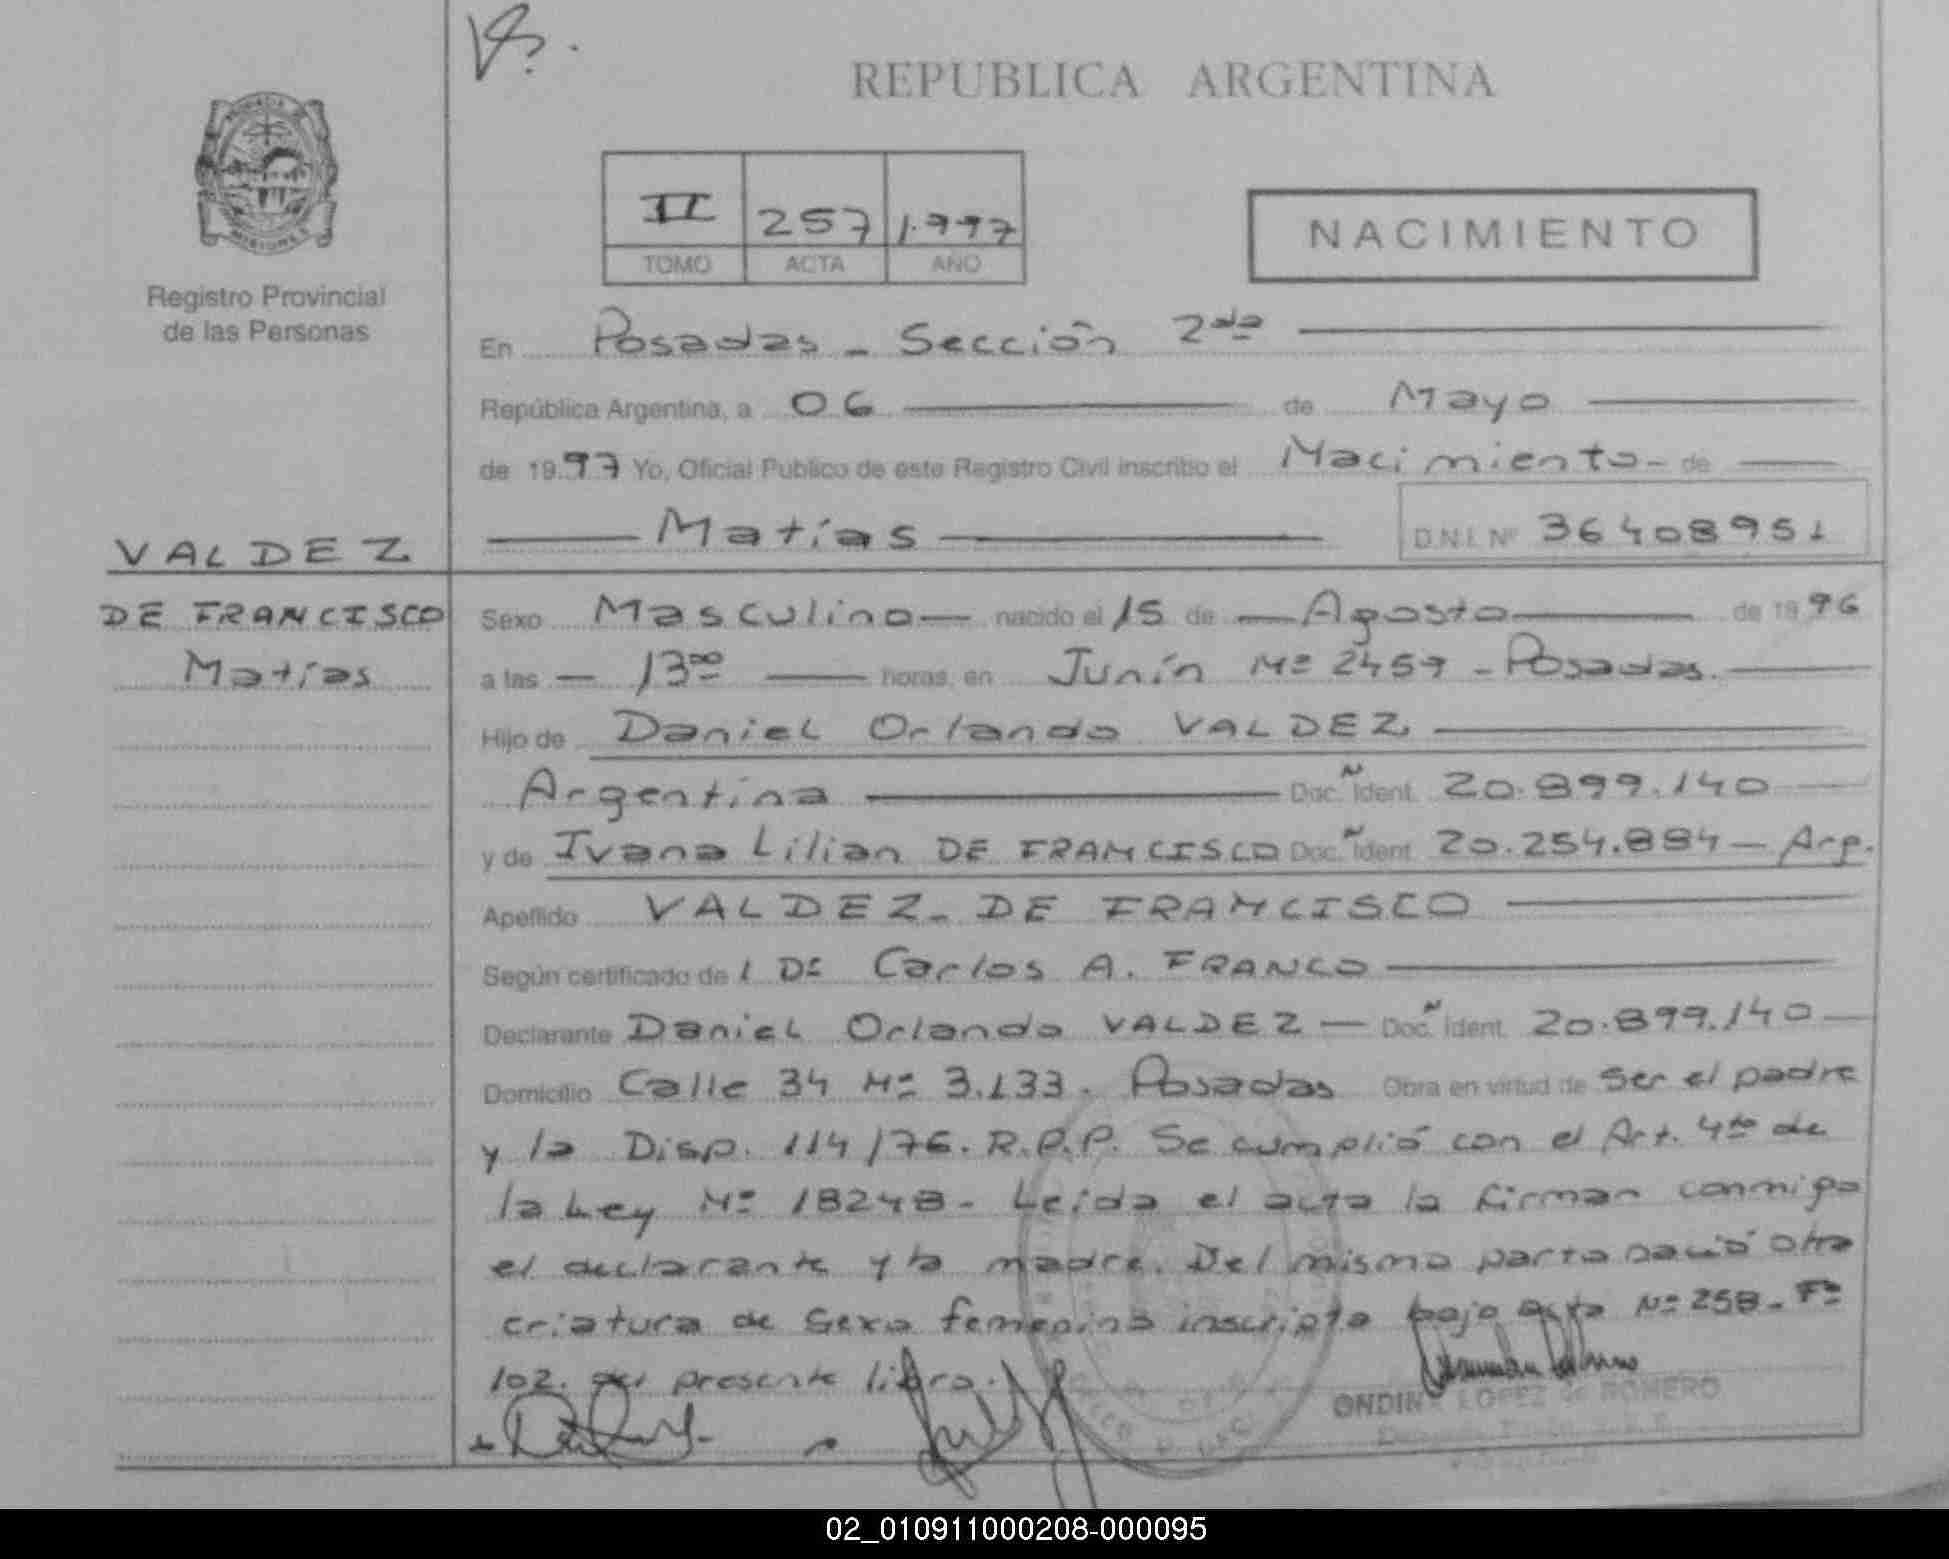 REPUBLICA ARGENTINA
MISIONES
Registro Provincial
de las Personas
II 257 1.997
TOMO ACTA AÑO
NACIMIENTO
En Posadas - Sección 2da
República Argentina, a 06 de Mayo
de 19.97 Yo, Oficial Público de este Registro Civil inscribo el Nacimiento - de
Matías
D.N.I. Nº 36408951
VALDEZ
DE FRANCISCO
Matías
Sexo Masculino nacido el 15 de Agosto de 19 96
a las 13.00 horas, en Junín Nº 2457 - Posadas.
Hijo de Daniel Orlando VALDEZ
Argentina Doc. Ident. 20.899.140
y de Ivana Lilian DE FRANCISCO Doc. Ident. 20.254.884 - Arg.
Apellido VALDEZ - DE FRANCISCO
Según certificado de l Dr Carlos A. FRANCO
Declarante Daniel Orlando VALDEZ Doc. Ident. 20.899.140
Domicilio Calle 34 Nº 3.133. Posadas Obra en virtud de ser el padre
y la Disp. 114/76. R.P.P. Se cumplió con el Art. 4to de
la Ley Nº 18248 - Leída el acta la firman conmigo
el declarante y la madre. Del mismo parto nació otra
criatura de sexo femenino inscripta bajo acta Nº 258 - Fº
102. del presente libro.
ONDINA LOPEZ de ROMERO
02_010911000208-000095